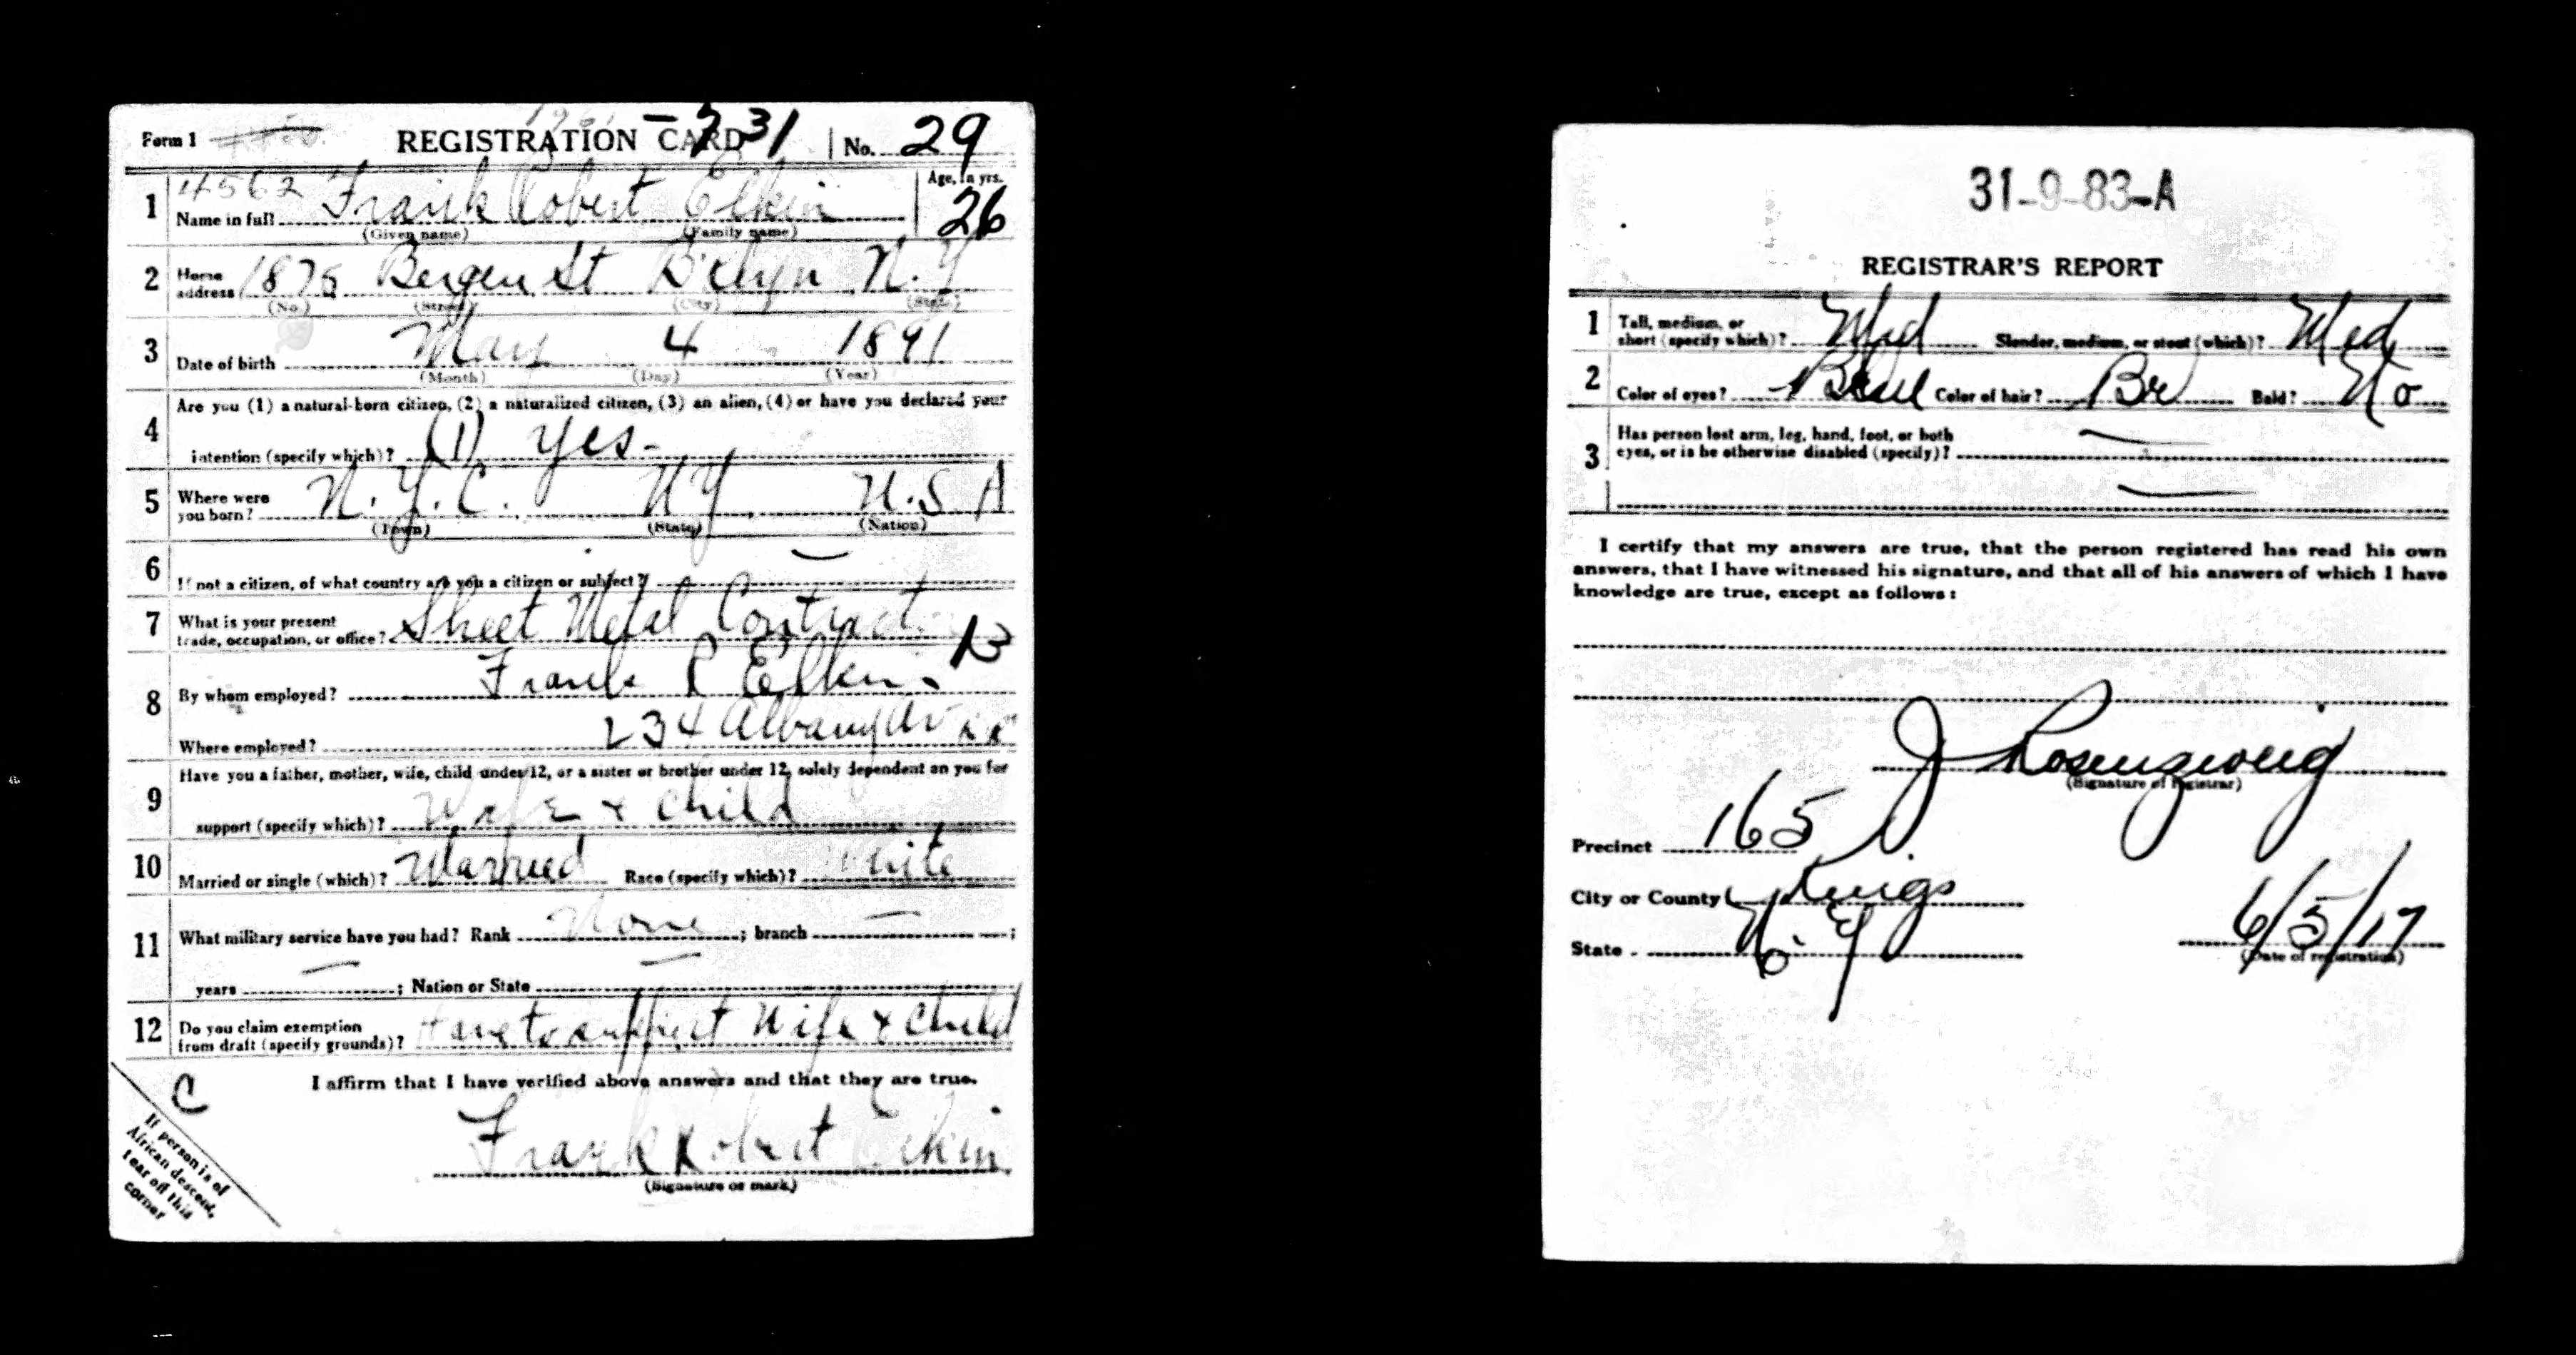 Form 1 REGISTRATION CARD 731 No. 29
4562
1 Name in full Frank Robert Elkin Age, in yrs. 26
(Given name) (Family name)
2 Home address 1875 Bergen St B'klyn N.Y
(No.) (Street) (City) (State)
3 Date of birth May 4 1891
(Month) (Day) (Year)
4 Are you (1) a natural-born citizen, (2) a naturalized citizen, (3) an alien, (4) or have you declared your
intention (specify which)? (1) Yes-
5 Where were you born? N.Y.C. NY U.S A
(Town) (State) (Nation)
6 If not a citizen, of what country are you a citizen or subject? —
7 What is your present trade, occupation, or office? Sheet Metal Contract.
13
8 By whom employed? Frank R Elkin
Where employed? 234 Albany Av
9 Have you a father, mother, wife, child under 12, or a sister or brother under 12, solely dependent on you for
support (specify which)? Wife + Child
10 Married or single (which)? Married Race (specify which)? White
11 What military service have you had? Rank None ; branch — ;
years — ; Nation or State —
12 Do you claim exemption from draft (specify grounds)? Have to support Wife + Child
C
I affirm that I have verified above answers and that they are true.
Frank Robert Elkin
(Signature or mark)
If person is of
African descent,
tear off this
corner
31-9-83-A
REGISTRAR'S REPORT
1 Tall, medium, or short (specify which)? Med Slender, medium, or stout (which)? Med
2 Color of eyes? Color of hair? Br Bald? No
3 Has person lost arm, leg, hand, foot, or both
eyes, or is he otherwise disabled (specify)? —
—
I certify that my answers are true, that the person registered has read his own
answers, that I have witnessed his signature, and that all of his answers of which I have
knowledge are true, except as follows:
J Rosenzweig
(Signature of registrar)
Precinct 165
City or County Kings
State N.Y 6/5/17
(Date of registration)